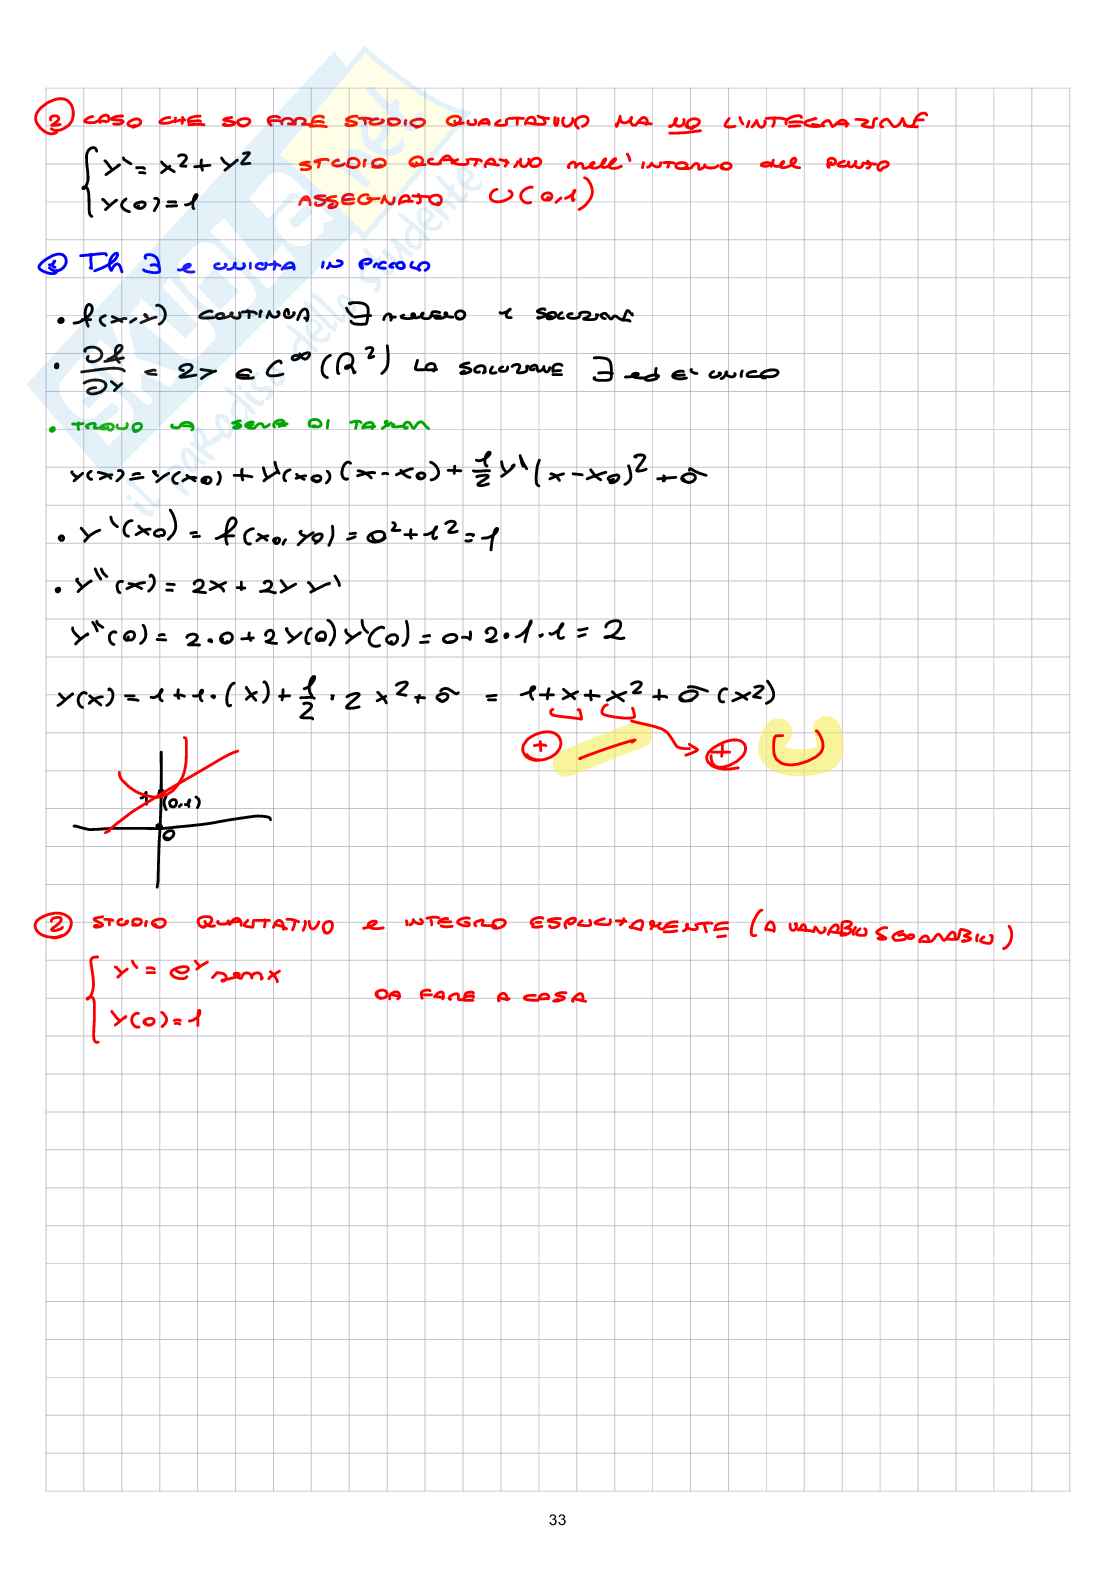 ② CASO CHE SO FARE STUDIO QUALITATIVO MA NO L'INTEGRAZIONE
y' = x² + y² STUDIO QUALITATIVO nell'intorno del punto
y(0)=1 ASSEGNATO U(0,1)
① Th ∃ e UNICITA IN PICCOLO
• f(x,y) CONTINUA ∃ almeno 1 SOLUZIONE
• ∂f/∂y = 2y ∈ C^∞(R²) LA SOLUZIONE ∃ ed E' UNICO
• TROVO LA SERIE DI TAYLOR
y(x) = y(x0) + y'(x0) (x-x0) + 1/2 y'' (x-x0)² + σ
• y'(x0) = f(x0, y0) = 0²+1² = 1
• y''(x) = 2x + 2y y'
y''(0) = 2·0 + 2 y(0) y'(0) = 0 + 2·1·1 = 2
y(x) = 1+1·(x) + 1/2 · 2 x² + σ = 1+x+x² + σ(x²)
+ +
1 (0,1)
0
② STUDIO QUALITATIVO e INTEGRO ESPLICITAMENTE (A VARIABILI SEPARABILI)
y' = e^y sen x
DA FARE A CASA
y(0)=1
33
SKUOLA.net
il paradiso dello studente